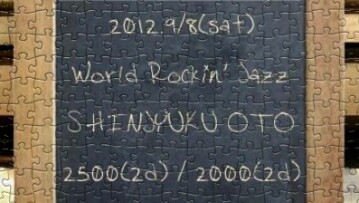 2012 9/8(sat)
World Rockin' Jazz
SHINJYUKU OTO
2500(2d) / 2000(2d)